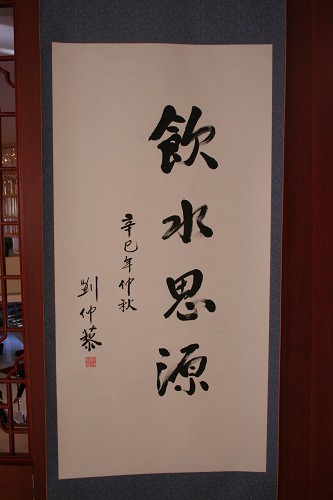 飲水思源
辛巳年仲秋
劉仲藜